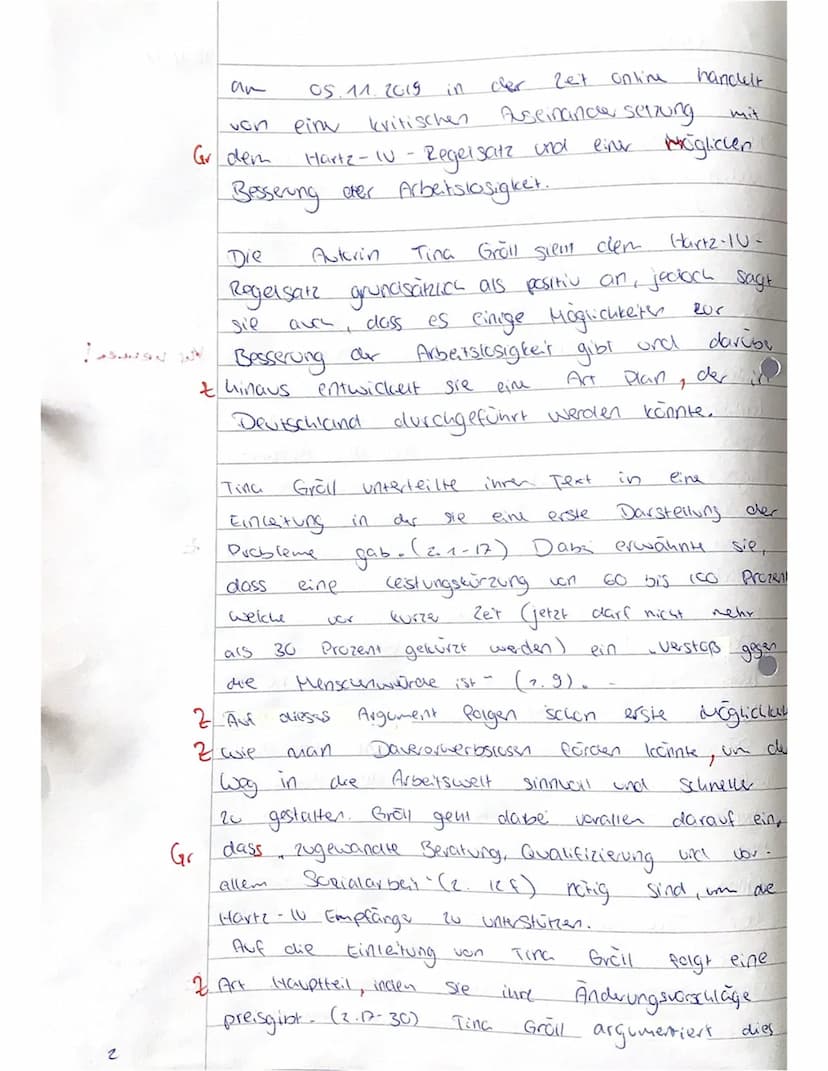 am 05.11.2019 in der Zeit Online handelt
von einer kritischen Auseinandersetzung mit
Gr dem Hartz-IV-Regelsatz und einer Möglichen
Besserung der Arbeitslosigkeit.
Die Autorin Tina Gröll sieht den Hartz-IV-
Regelsatz grundsätzlich als positiv an, jedoch sagt
sie auch, dass es einige Möglichkeiten zur
Besserung der Arbeitslosigkeit gibt und darüber
t hinaus entwickelt sie eine Art Plan, der in
Deutschland durchgeführt werden könnte.
Tina Gröll unterteilte ihren Text in eine
Einleitung in der sie eine erste Darstellung der
Probleme gab. (Z.1-17) Dabei erwähnte sie,
dass eine Leistungskürzung von 60 bis 100 Prozent
welche vor kurzer Zeit (jetzt darf nicht mehr
als 30 Prozent gekürzt werden) ein "Verstoß gegen
die Menschenwürde ist" (Z.9).
Z Auf dieses Argument folgen schon erste Möglichkeit
Z wie man Dauererwerbslosen fördern könnte, um den
Weg in die Arbeitswelt sinnvoll und schneller
zu gestalten. Gröll geht dabei vorallem darauf ein,
Gr dass "zugewandte Beratung, Qualifizierung und vor-
allem Sozialarbeit" (Z. 12f) nötig sind, um die
Hartz-IV Empfänger zu unterstützen.
Auf die Einleitung von Tina Gröll folgt eine
Z Art Hauptteil, indem sie ihre Änderungsvorschläge
preisgibt. (Z.17-30) Tina Gröll argumentiert dies
2